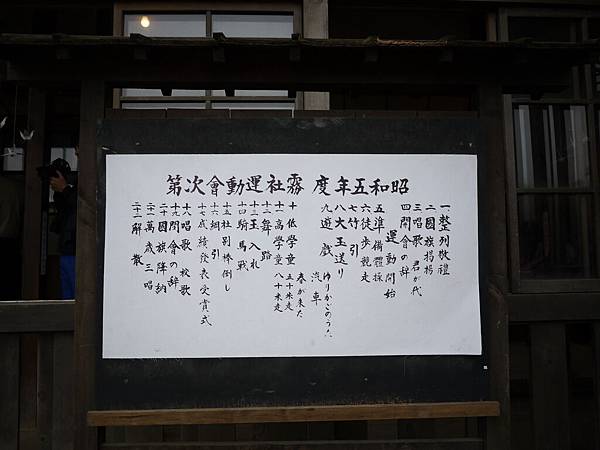 昭和五年度 霧社運動會次第
一整列敬禮
二國旗掲揚
三唱歌 君が代
四開會の辞
運動開始
五準備體操
六徒歩競走
七竹引
八大玉送り
九遊戯
ゆりかごのうた
汽車
春が来た
十低學童 五十米走
十一高學童 八十米走
十二舞踏
十三玉入れ
十四騎馬戰
十五社別棒倒し
十六綱引
十七成績發表受賞式
十八唱歌 校歌
十九閉會の辞
二十國旗降納
二十一萬歳三唱
二十二解散